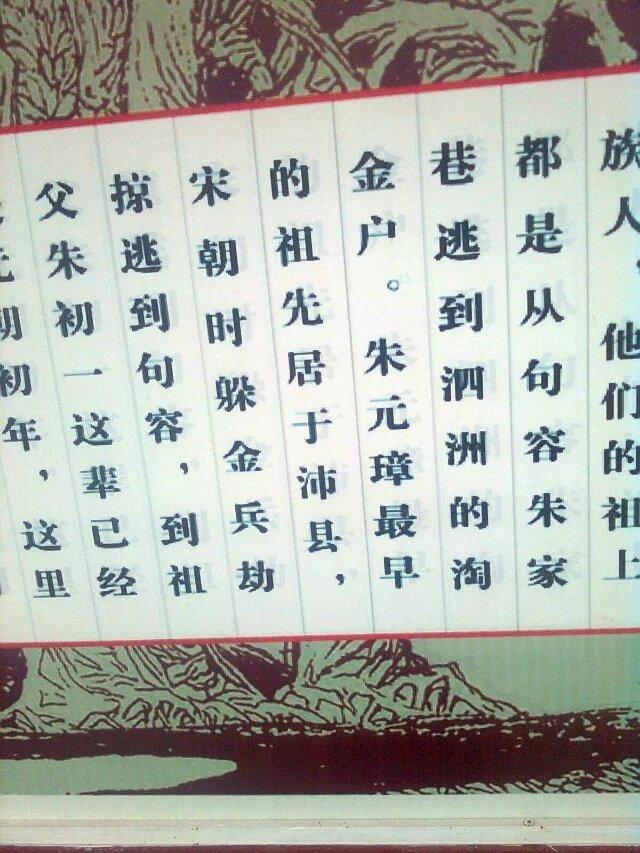 族人，他们的祖上
都是从句容朱家
巷逃到泗洲的淘
金户。朱元璋最早
的祖先居于沛县，
宋朝时躲金兵劫
掠逃到句容，到祖
父朱初一这辈已经
朝初年，这里